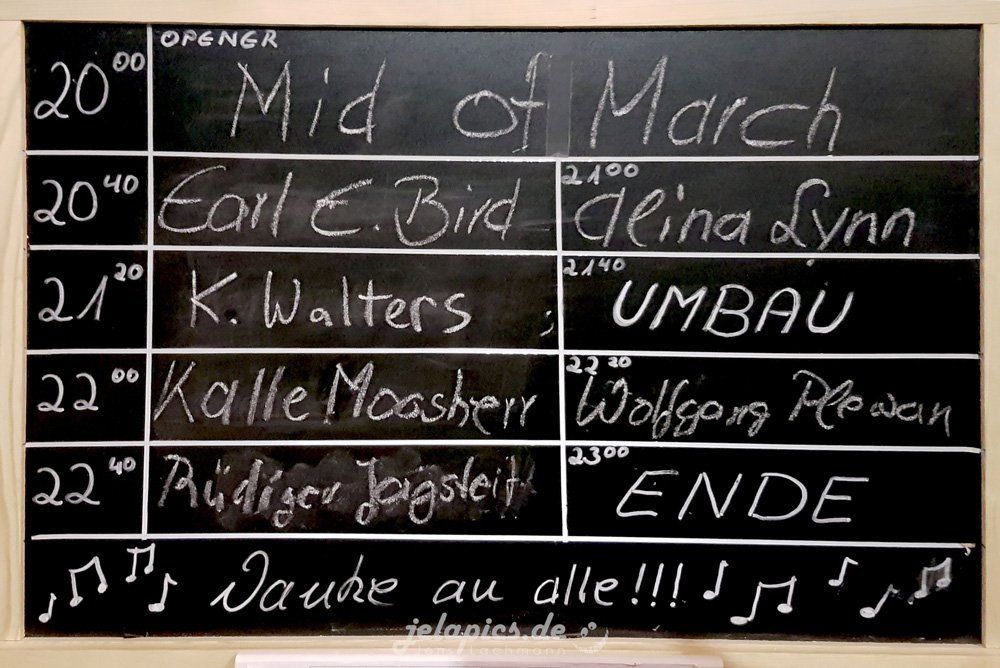 OPENER
20 00 Mid of March
20 40 Earl E. Bird 21 00 Alina Lynn
21 20 K. Walters 21 40 UMBAU
22 00 Kalle Moosherr 22 20 Wolfgang Plewan
22 40 Rüdiger 23 00 ENDE
Danke an alle!!!
jelapics.de
Jens Lachmann